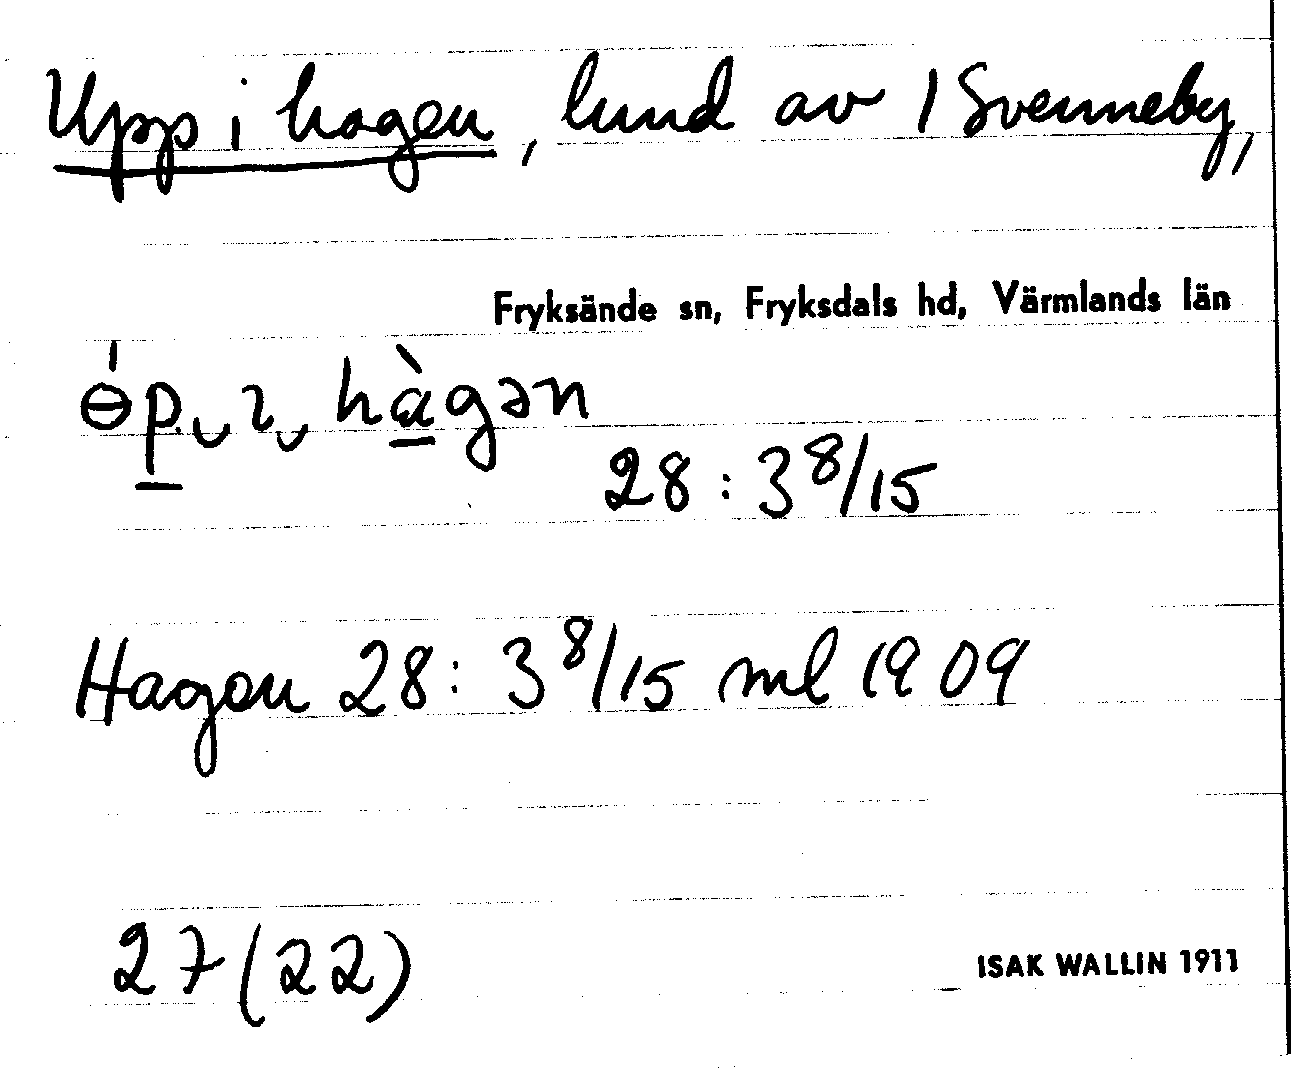 Upp i hagen, lund av / Svenneby,
Fryksände sn, Fryksdals hd, Värmlands län
hàgən
28 : 3 8/15
Hagen 28 : 3 8/15 ml 1909
27 (22)
ISAK WALLIN 1911